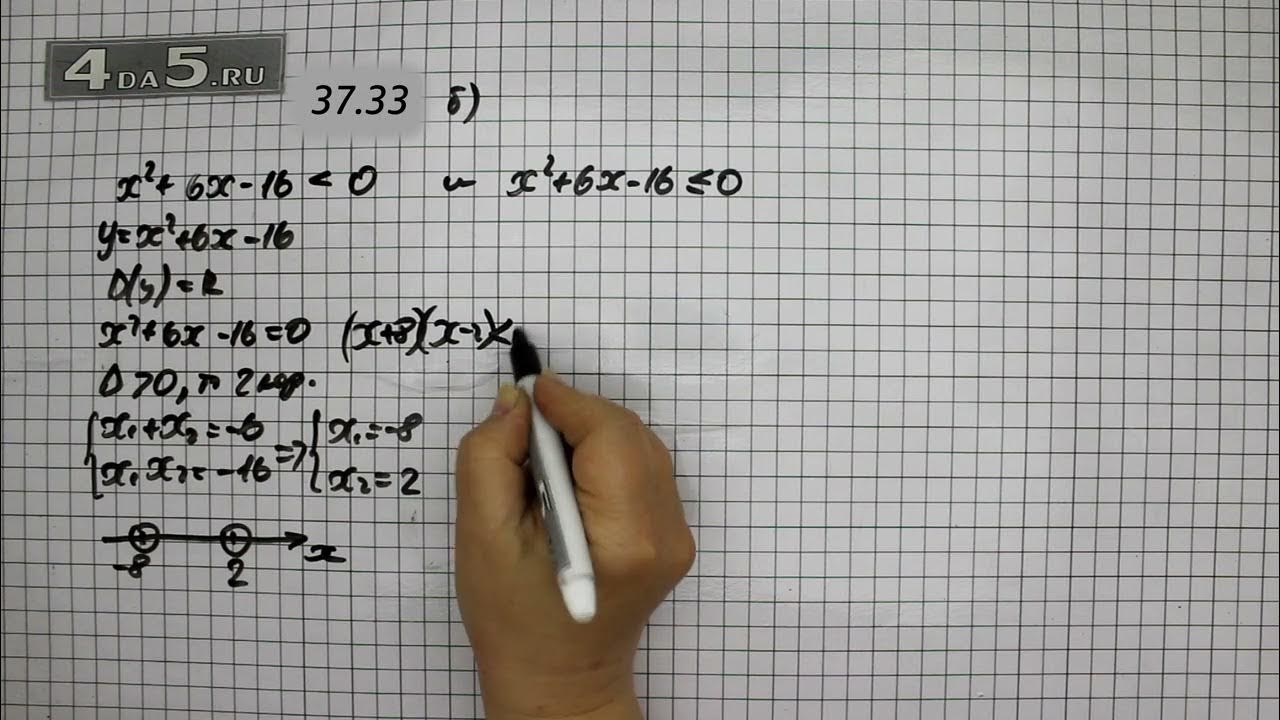 4DA5.RU
37.33 б)
x²+6x-16<0 и x²+6x-16≤0
y=x²+6x-16
D(y)=R
x²+6x-16=0 (x+8)(x-2)<
D>0, 2 кор.
{x₁+x₂=-6 => {x₁=-8
{x₁x₂=-16 {x₂=2
-8 2 x